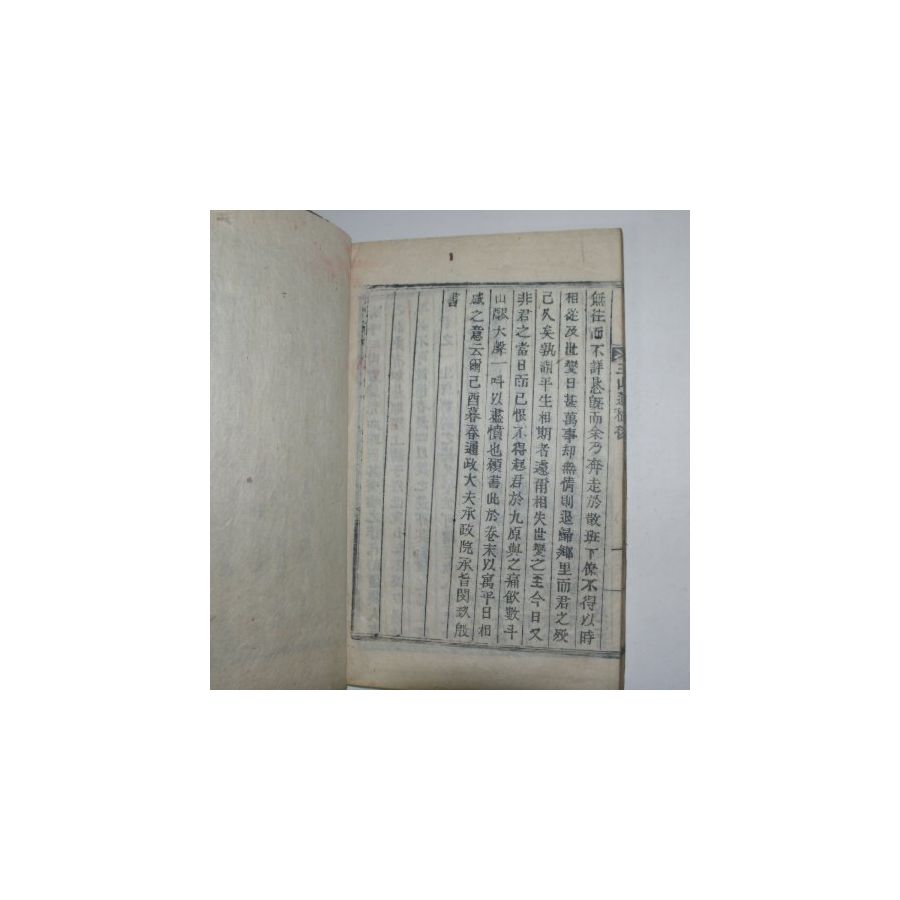 無往而不詳懇旣而余乃奔走於散班下僚不得以時
相從及世變日甚萬事却無情則退歸鄉里而君之歿
已久矣孰謂平生相期者遠爾相失世變之至今日又
非君之當日而已恨不得起君於九原與之痛飲數斗
山醪大聲一呌以盡憤也顧書此於卷末以寓平日相
感之意云爾己酉暮春通政大夫承政院承旨閔玖殷
書